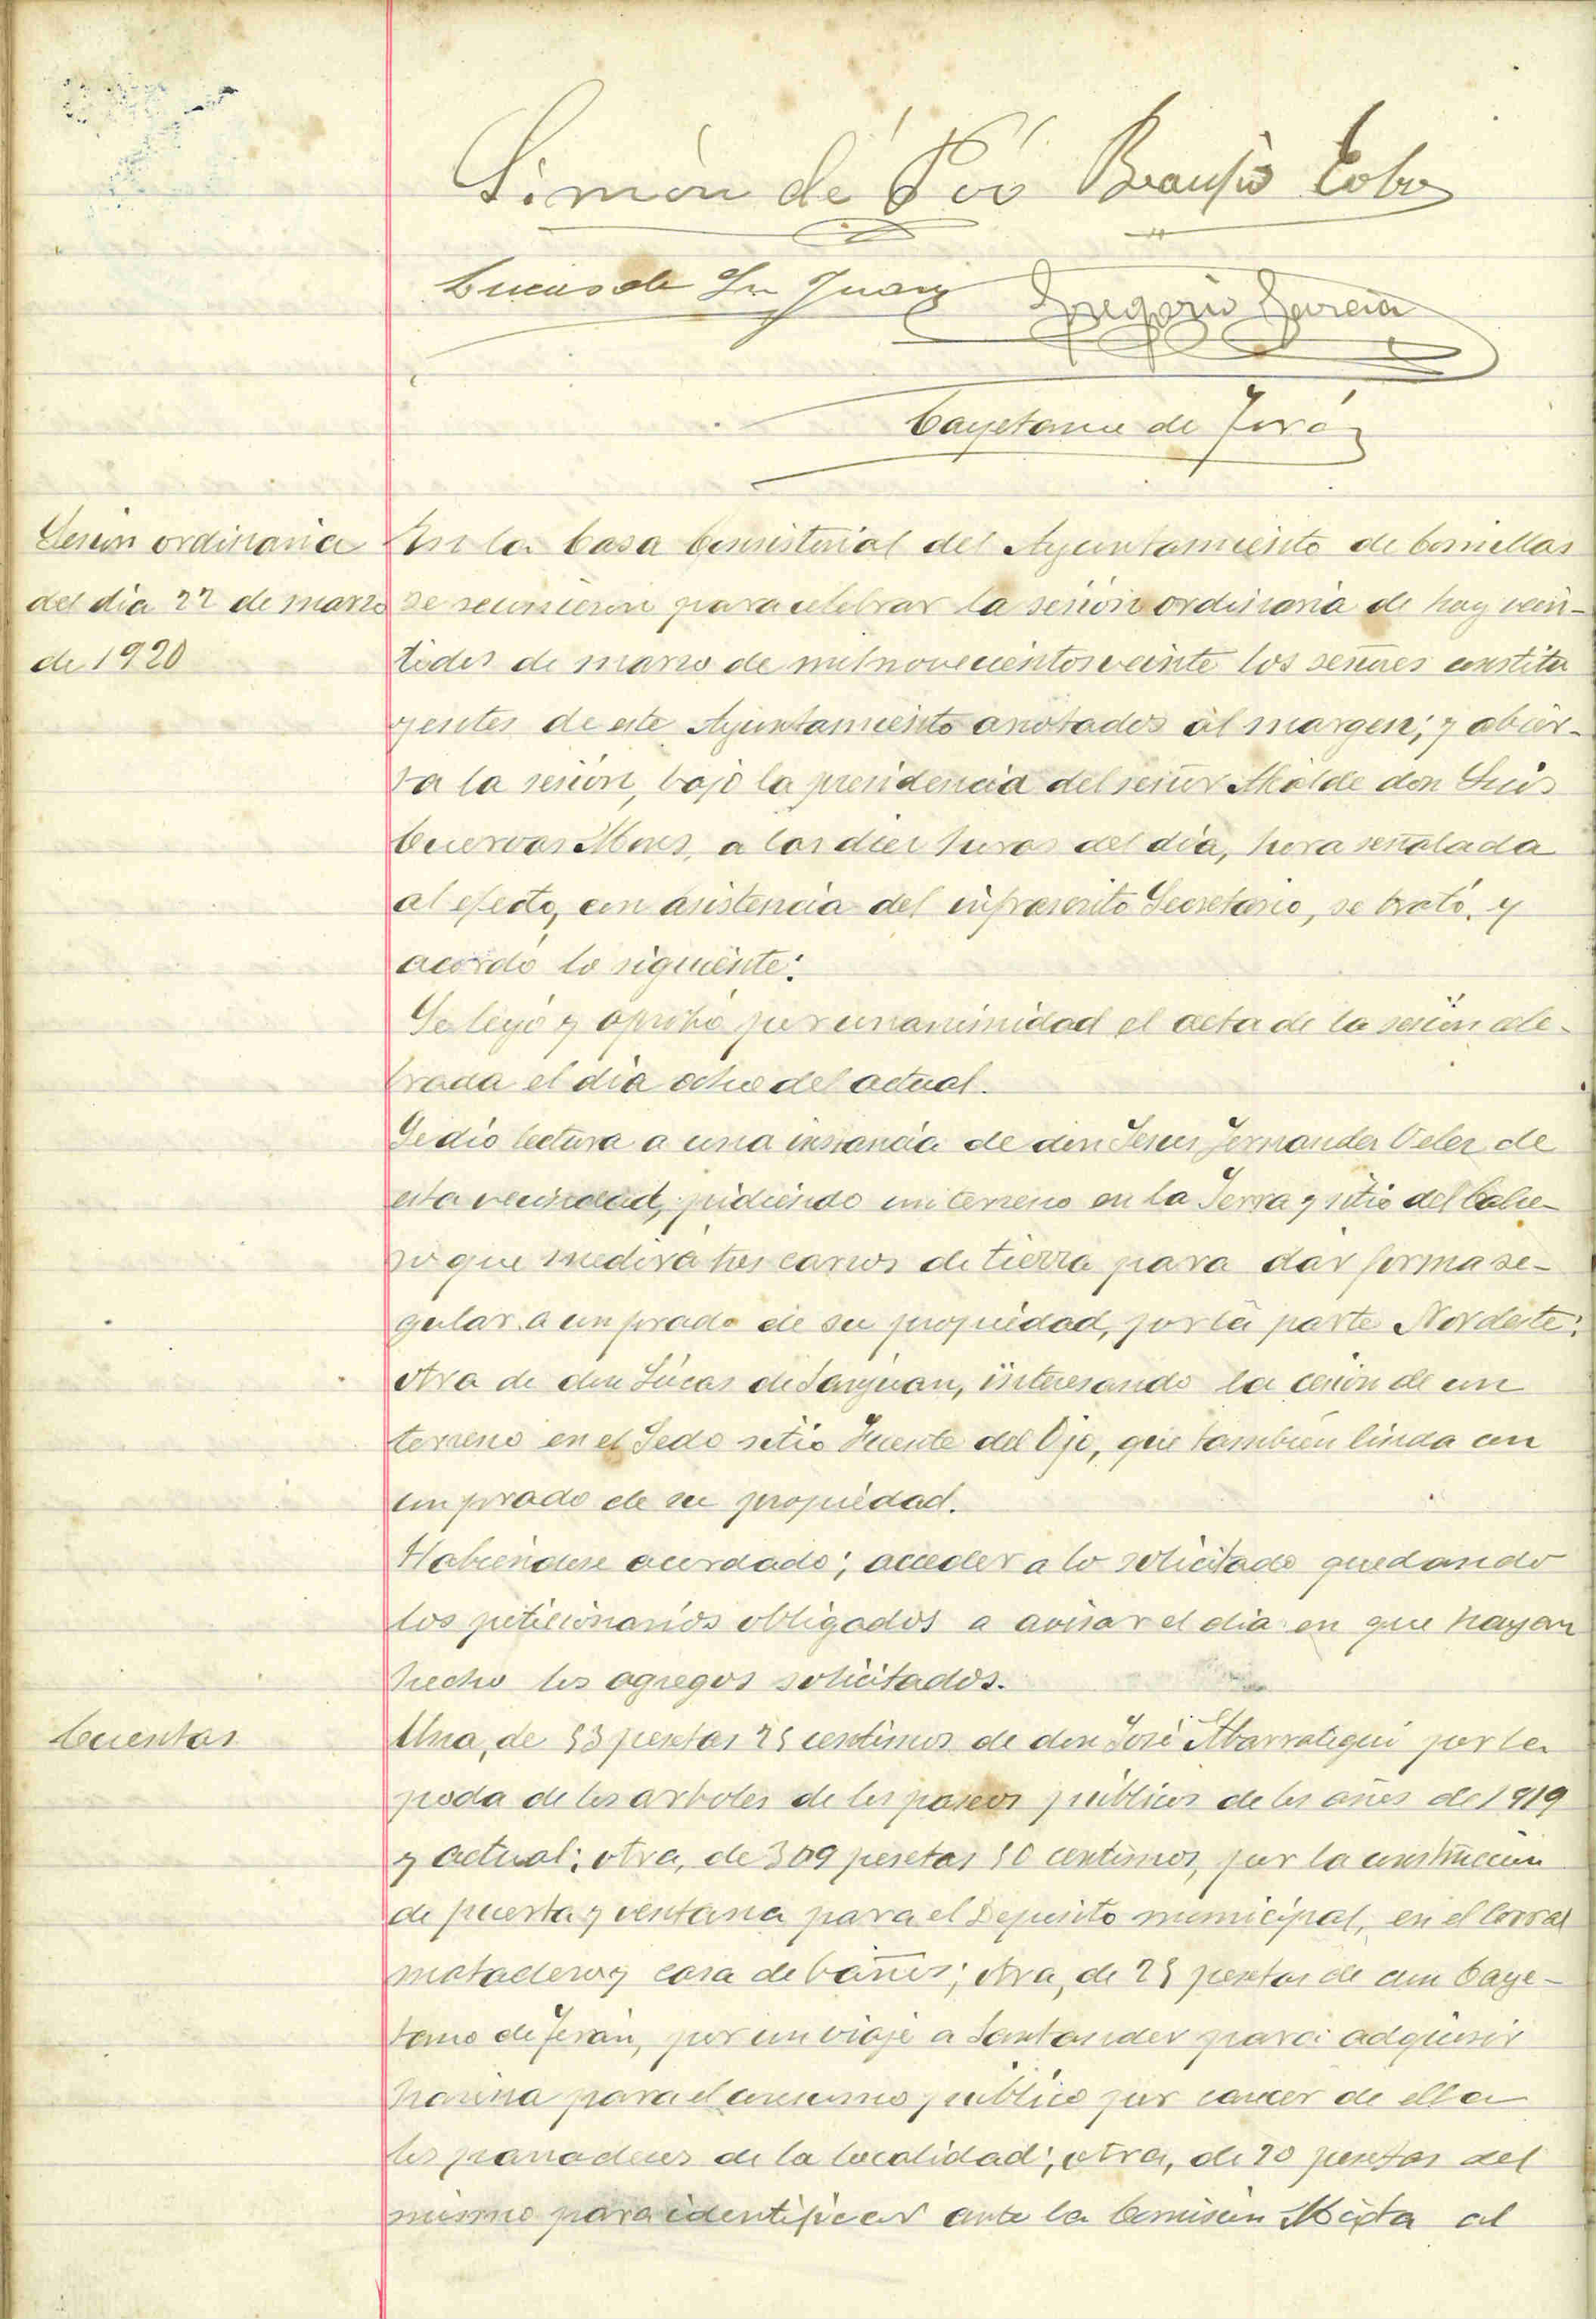 Simón de Poó Braulio Cobo
Lucas de San Juan Gregorio Garcia
Cayetano de Terán
Sesión ordinaria
del dia 22 de marzo
de 1920
En la Casa Consistorial del Ayuntamiento de Comillas
se reunieron para celebrar la sesión ordinaria de hoy vein-
tidos de marzo de mil novecientos veinte los señores constitu
yentes de este Ayuntamiento anotados al margen; y abier-
ta la sesión, bajo la presidencia del señor Alcalde don Luis
Cuervas Mons, a las diez horas del dia, hora señalada
al efecto, con asistencia del infrascrito Secretario, se trató y
acordó lo siguiente:
Se leyó y aprobó por unanimidad el acta de la sesión cele-
brada el dia ocho del actual.
Se dió lectura a una instancia de don Jesus Fernandez Velez de
esta vecindad, pidiendo un terreno en la Serra y sitio del
que medirá tres carros de tierra para dar forma re-
gular a un prado de su propiedad, por la parte Nordeste;
otra de don Lucas de Sanjuan, interesando la cesión de un
terreno en el Sedo sitio Fuente del Ojo, que tambien linda con
un prado de su propiedad.
Habiendose acordado; acceder a lo solicitado quedando
los peticionarios obligados a avisar el dia en que hayan
hecho los agregos solicitados.
Cuentas
Una, de 53 pesetas 25 centimos de don José Abarrategui por la
poda de los arboles de los paseos públicos de los años de 1919
y actual; otra, de 309 pesetas 50 centimos, por la construccion
de puerta y ventana para el Deposito municipal, en el Corral
matadero y casa de baños; otra, de 25 pesetas de don Caye-
tano de Terán, por un viaje a Santander para adquirir
harina para el consumo público por carecer de ella
los panaderos de la localidad; otra, de 20 pesetas del
mismo para identificar ante la Comisión Mixta al